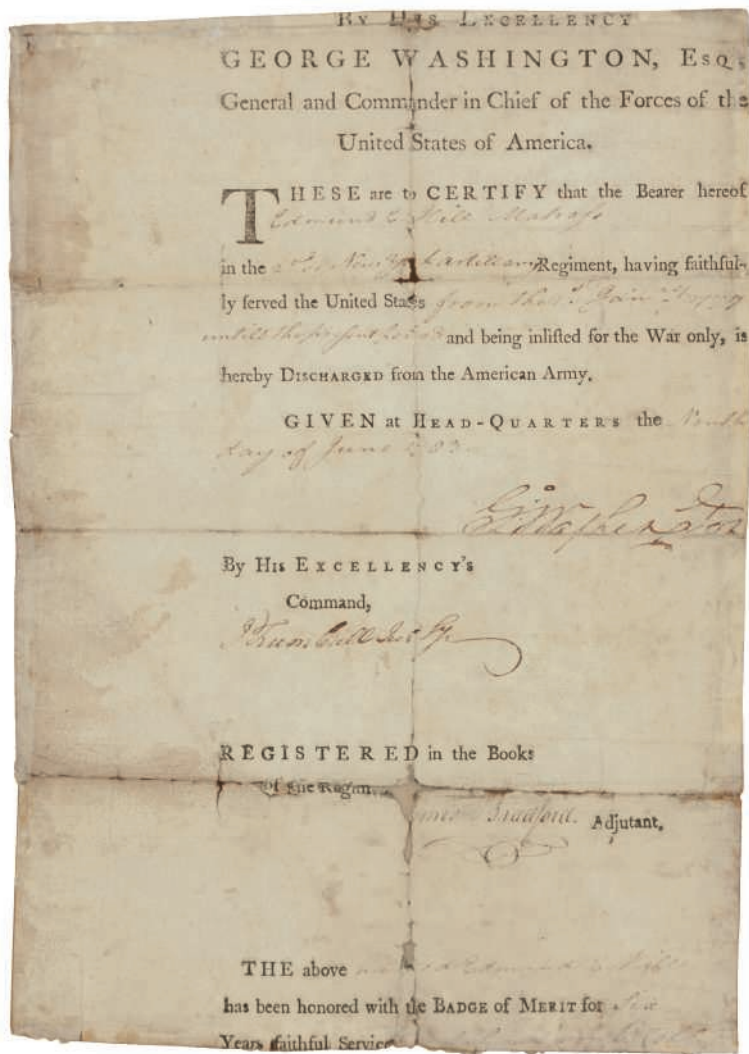 By His Excellency
GEORGE WASHINGTON, Esq;
General and Commander in Chief of the Forces of the
United States of America.
THESE are to CERTIFY that the Bearer hereof
Edmund Hill Matross
in the 2d New York Artillery Regiment, having faithful-
ly ſerved the United States from the
until the preſent and being inliſted for the War only, is
hereby Discharged from the American Army.
GIVEN at Head-Quarters the
day of June 1783
Go Washington
By His Excellency's
Command,
J Trumbull Jun Sy
REGISTERED in the Books
of the Regim
Bradford. Adjutant,
THE above Edmund Hill
has been honored with the Badge of Merit for Six
Years faithful Service